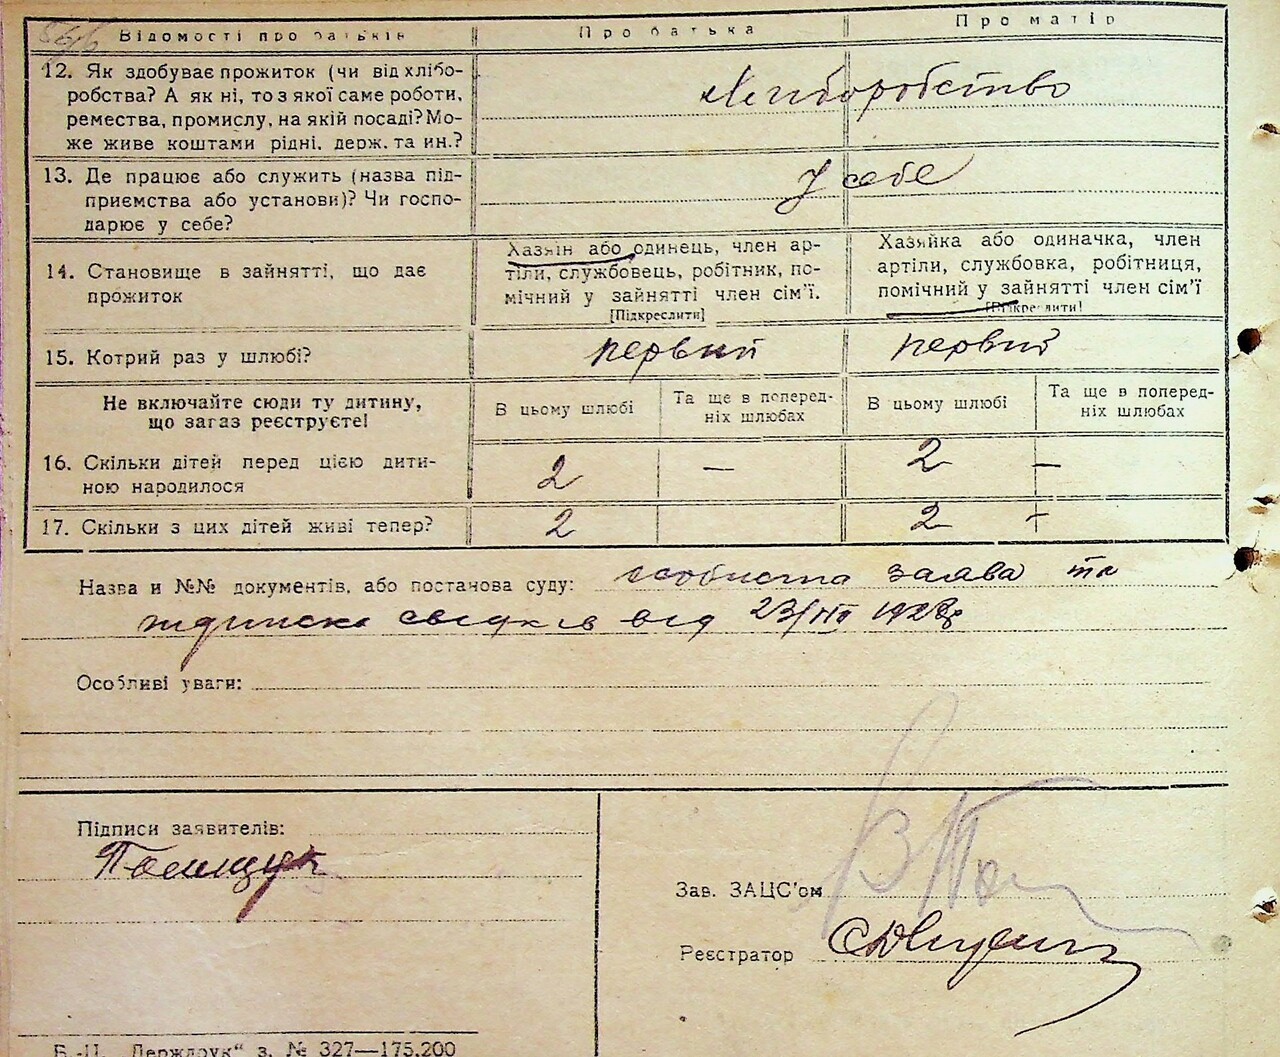 Відомості про батьків
Про батька
Про матір
12. Як здобуває прожиток (чи від хлібо-
робства? А як ні, то з якої саме роботи,
ремества, промислу, на якій посаді? Мо-
же живе коштами рідні, держ. та ин.?
Хліборобство
13. Де працює або служить (назва під-
приємства або установи)? Чи госпо-
дарює у себе?
У себе
14. Становище в зайнятті, що дає
прожиток
Хазяїн або одинець, член ар-
тіли, службовець, робітник, по-
мічний у зайнятті член сім'ї.
[Підкреслити]
Хазяйка або одиначка, член
артіли, службовка, робітниця,
помічний у зайнятті член сім'ї
[Підкреслити]
15. Котрий раз у шлюбі?
первий
первий
Не включайте сюди ту дитину,
що зараз реєструєте!
В цьому шлюбі
Та ще в поперед-
ніх шлюбах
В цьому шлюбі
Та ще в поперед-
ніх шлюбах
16. Скільки дітей перед цією дити-
ною народилося
2
—
2
—
17. Скільки з цих дітей живі тепер?
2
2
—
Назва и №№ документів, або постанова суду: особиста заява та
підписка свідків від 23/VII 1928р
Особливі уваги:
Підписи заявителів:
Поліщук
Зав. ЗАЦС'ом
Реєстратор
Б.-Ц. „Держдрук“ з. № 327—175.200